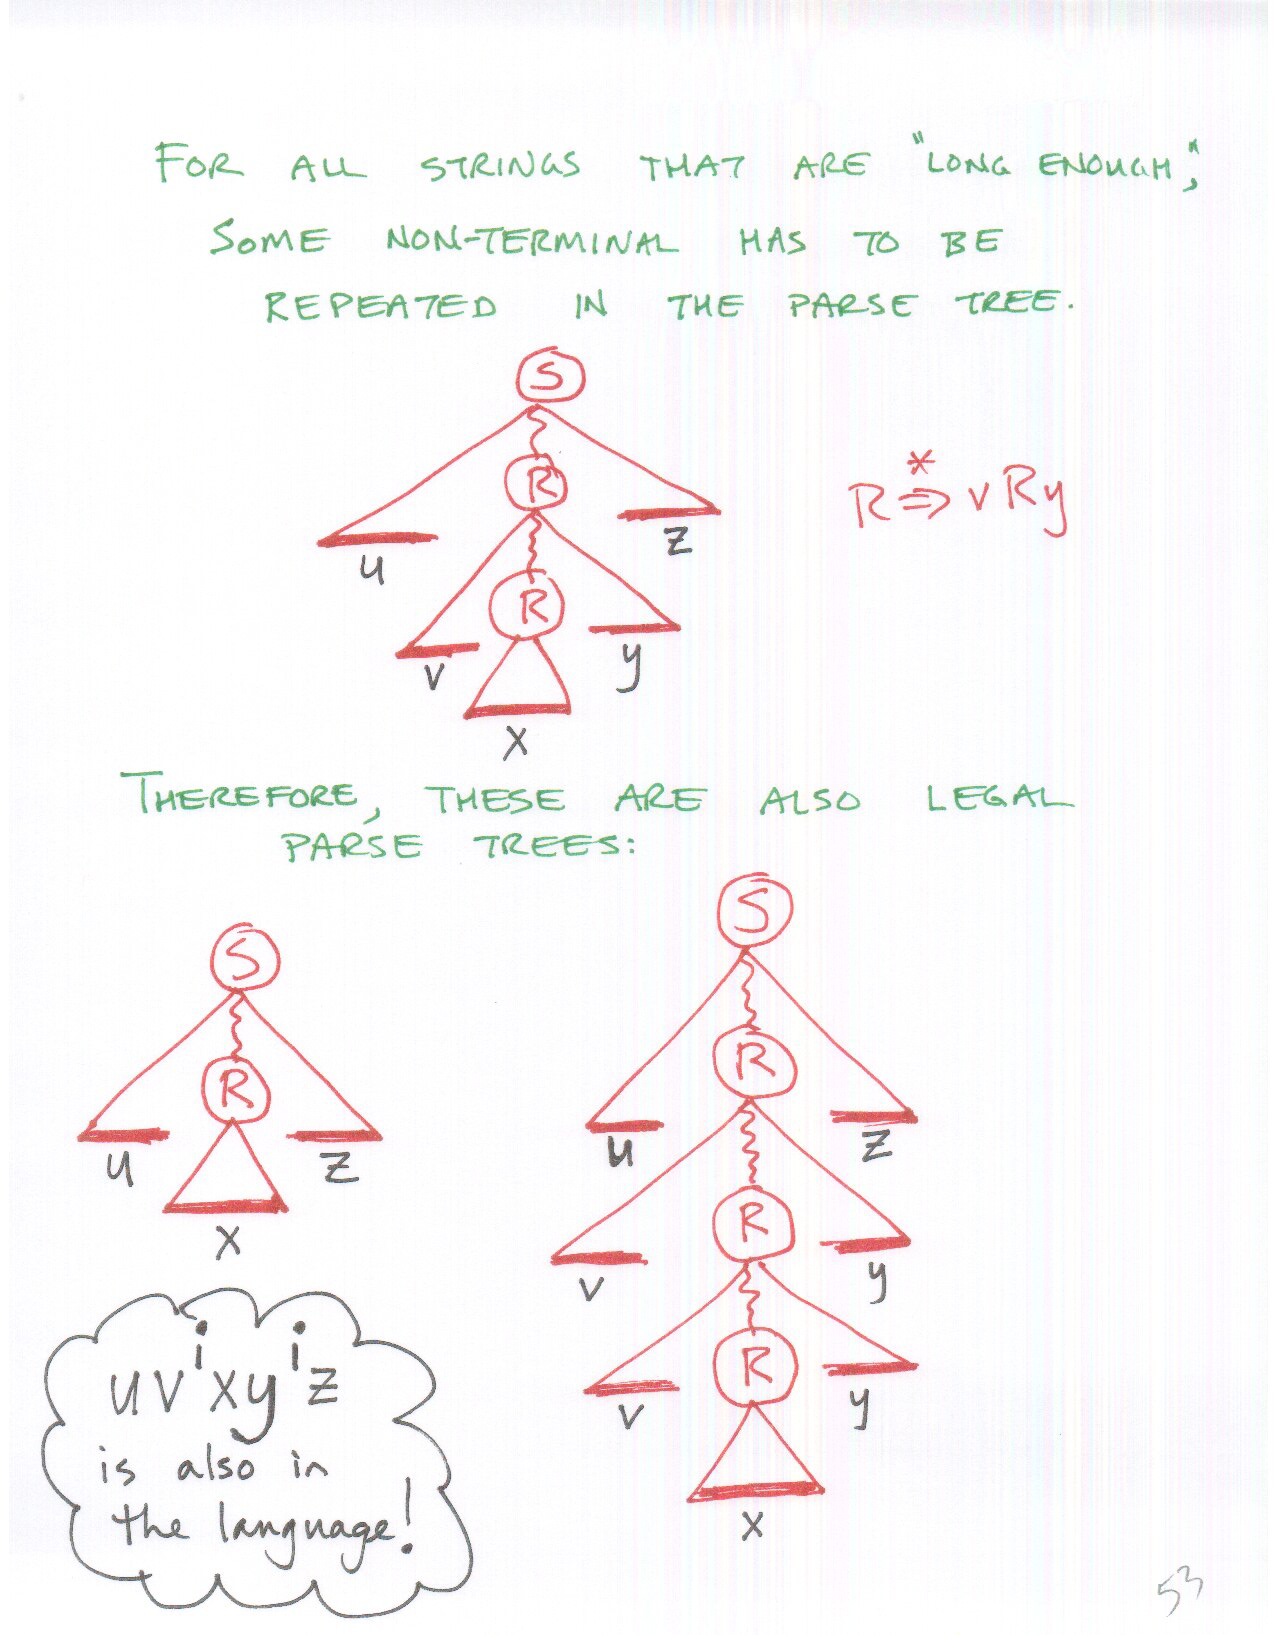 FOR ALL STRINGS THAT ARE "LONG ENOUGH,"
SOME NON-TERMINAL HAS TO BE
REPEATED IN THE PARSE TREE.
S
R
R ⇒* v R y
u
z
R
v
y
x
THEREFORE, THESE ARE ALSO LEGAL
PARSE TREES:
S
R
u
z
x
S
R
u
z
R
v
y
R
v
y
x
uvⁱxyⁱz
is also in
the language!
53